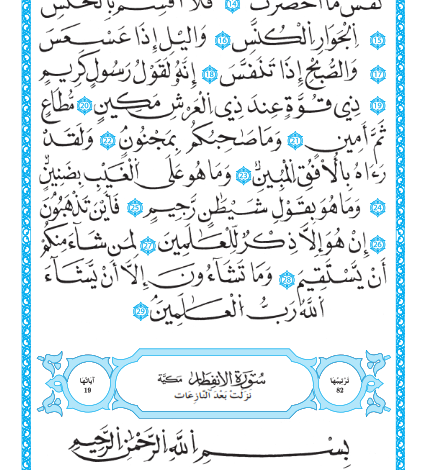 نَفْسٌ مَا أَحْضَرَتْ ١٤ فَلَا أُقْسِمُ بِالْخُنَّسِ
١٥ الْجَوَارِ الْكُنَّسِ ١٦ وَالَّيْلِ إِذَا عَسْعَسَ
١٧ وَالصُّبْحِ إِذَا تَنَفَّسَ ١٨ إِنَّهُ لَقَوْلُ رَسُولٍ كَرِيمٍ
١٩ ذِي قُوَّةٍ عِندَ ذِي الْعَرْشِ مَكِينٍ ٢٠ مُّطَاعٍ
ثَمَّ أَمِينٍ ٢١ وَمَا صَاحِبُكُم بِمَجْنُونٍ ٢٢ وَلَقَدْ
رَءَاهُ بِالْأُفُقِ الْمُبِينِ ٢٣ وَمَا هُوَ عَلَى الْغَيْبِ بِضَنِينٍ
٢٤ وَمَا هُوَ بِقَوْلِ شَيْطَٰنٍ رَّجِيمٍ ٢٥ فَأَيْنَ تَذْهَبُونَ
٢٦ إِنْ هُوَ إِلَّا ذِكْرٌ لِّلْعَالَمِينَ ٢٧ لِمَن شَاءَ مِنكُمْ
أَنْ يَسْتَقِيمَ ٢٨ وَمَا تَشَاءُونَ إِلَّا أَنْ يَشَاءَ
اللَّهُ رَبُّ الْعَالَمِينَ ٢٩
تَرْتِيبُهَا 82
سُورَةُ الِانفِطَارِ مَكِّيَّة
نَزَلَتْ بَعْدَ النَّازِعَات
آيَاتُهَا 19
بِسْمِ اللَّهِ الرَّحْمَٰنِ الرَّحِيمِ